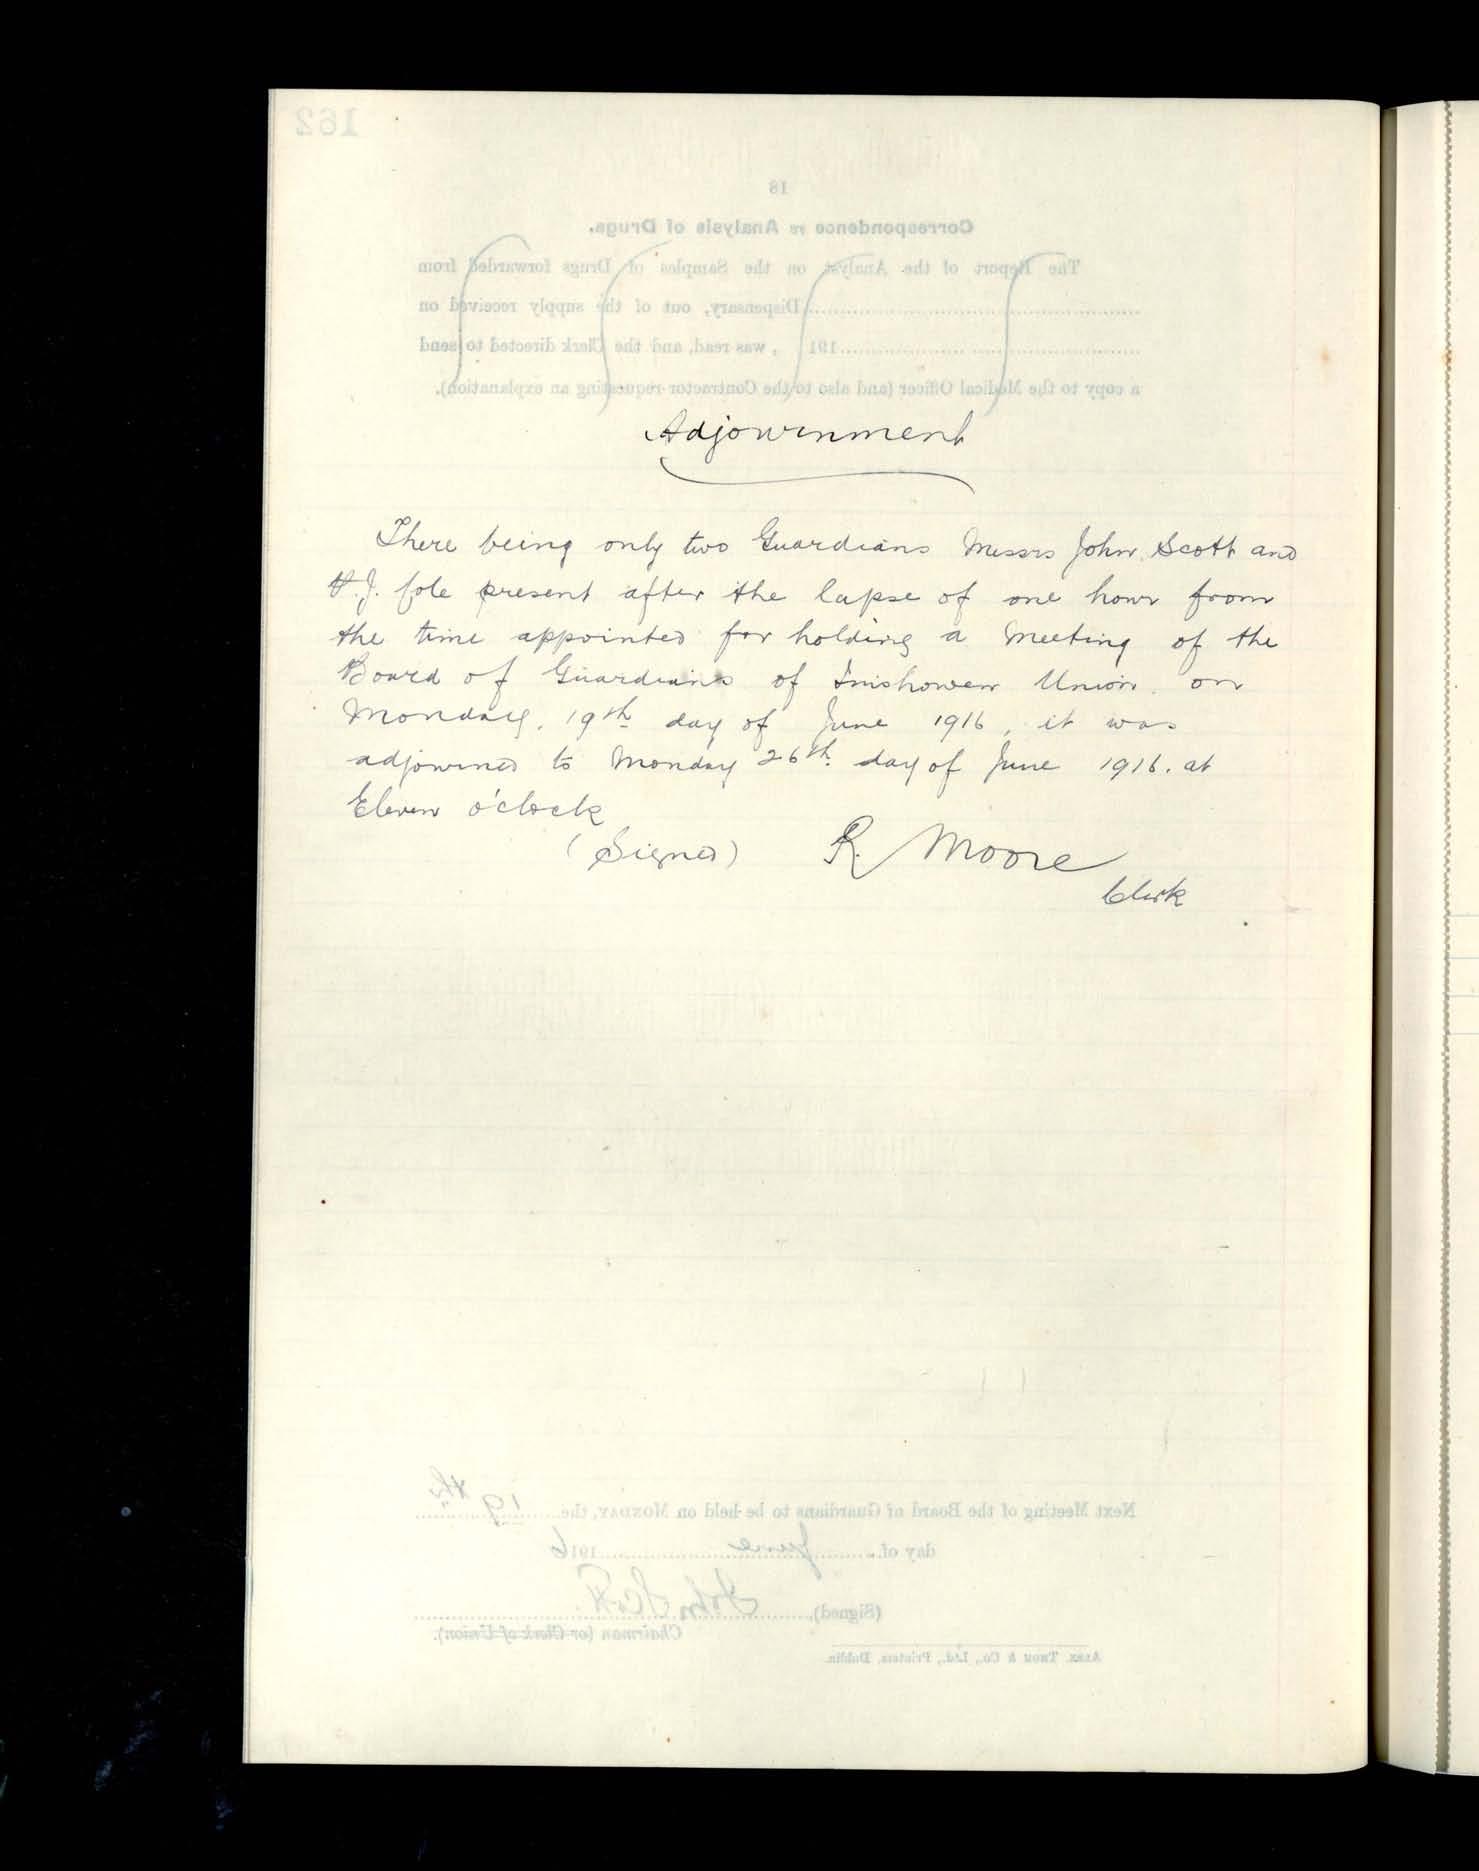 Adjournment
There being only two Guardians Messrs John Scott and
present after the lapse of one hour from
the time appointed for holding a Meeting of the
Board of Guardians of Inishowen Union on
Monday, 19th day of June 1916, it was
adjourned to Monday 26th day of June 1916. at
Eleven o'clock
(Signed) R. Moore
Clerk
162
18
Correspondence re Analysis of Drugs.
The Report of the Analyst on the Samples of Drugs forwarded from
Dispensary, out of the supply received on
191 , was read, and the Clerk directed to send
a copy to the Medical Officer (and also to the Contractor requesting an explanation).
Next Meeting of the Board of Guardians to be held on MONDAY, the 19th
day of June 1916
(Signed), John Scott.
Chairman (or Clerk of Union).
ALEX. THOM & Co., Ltd., Printers, Dublin.